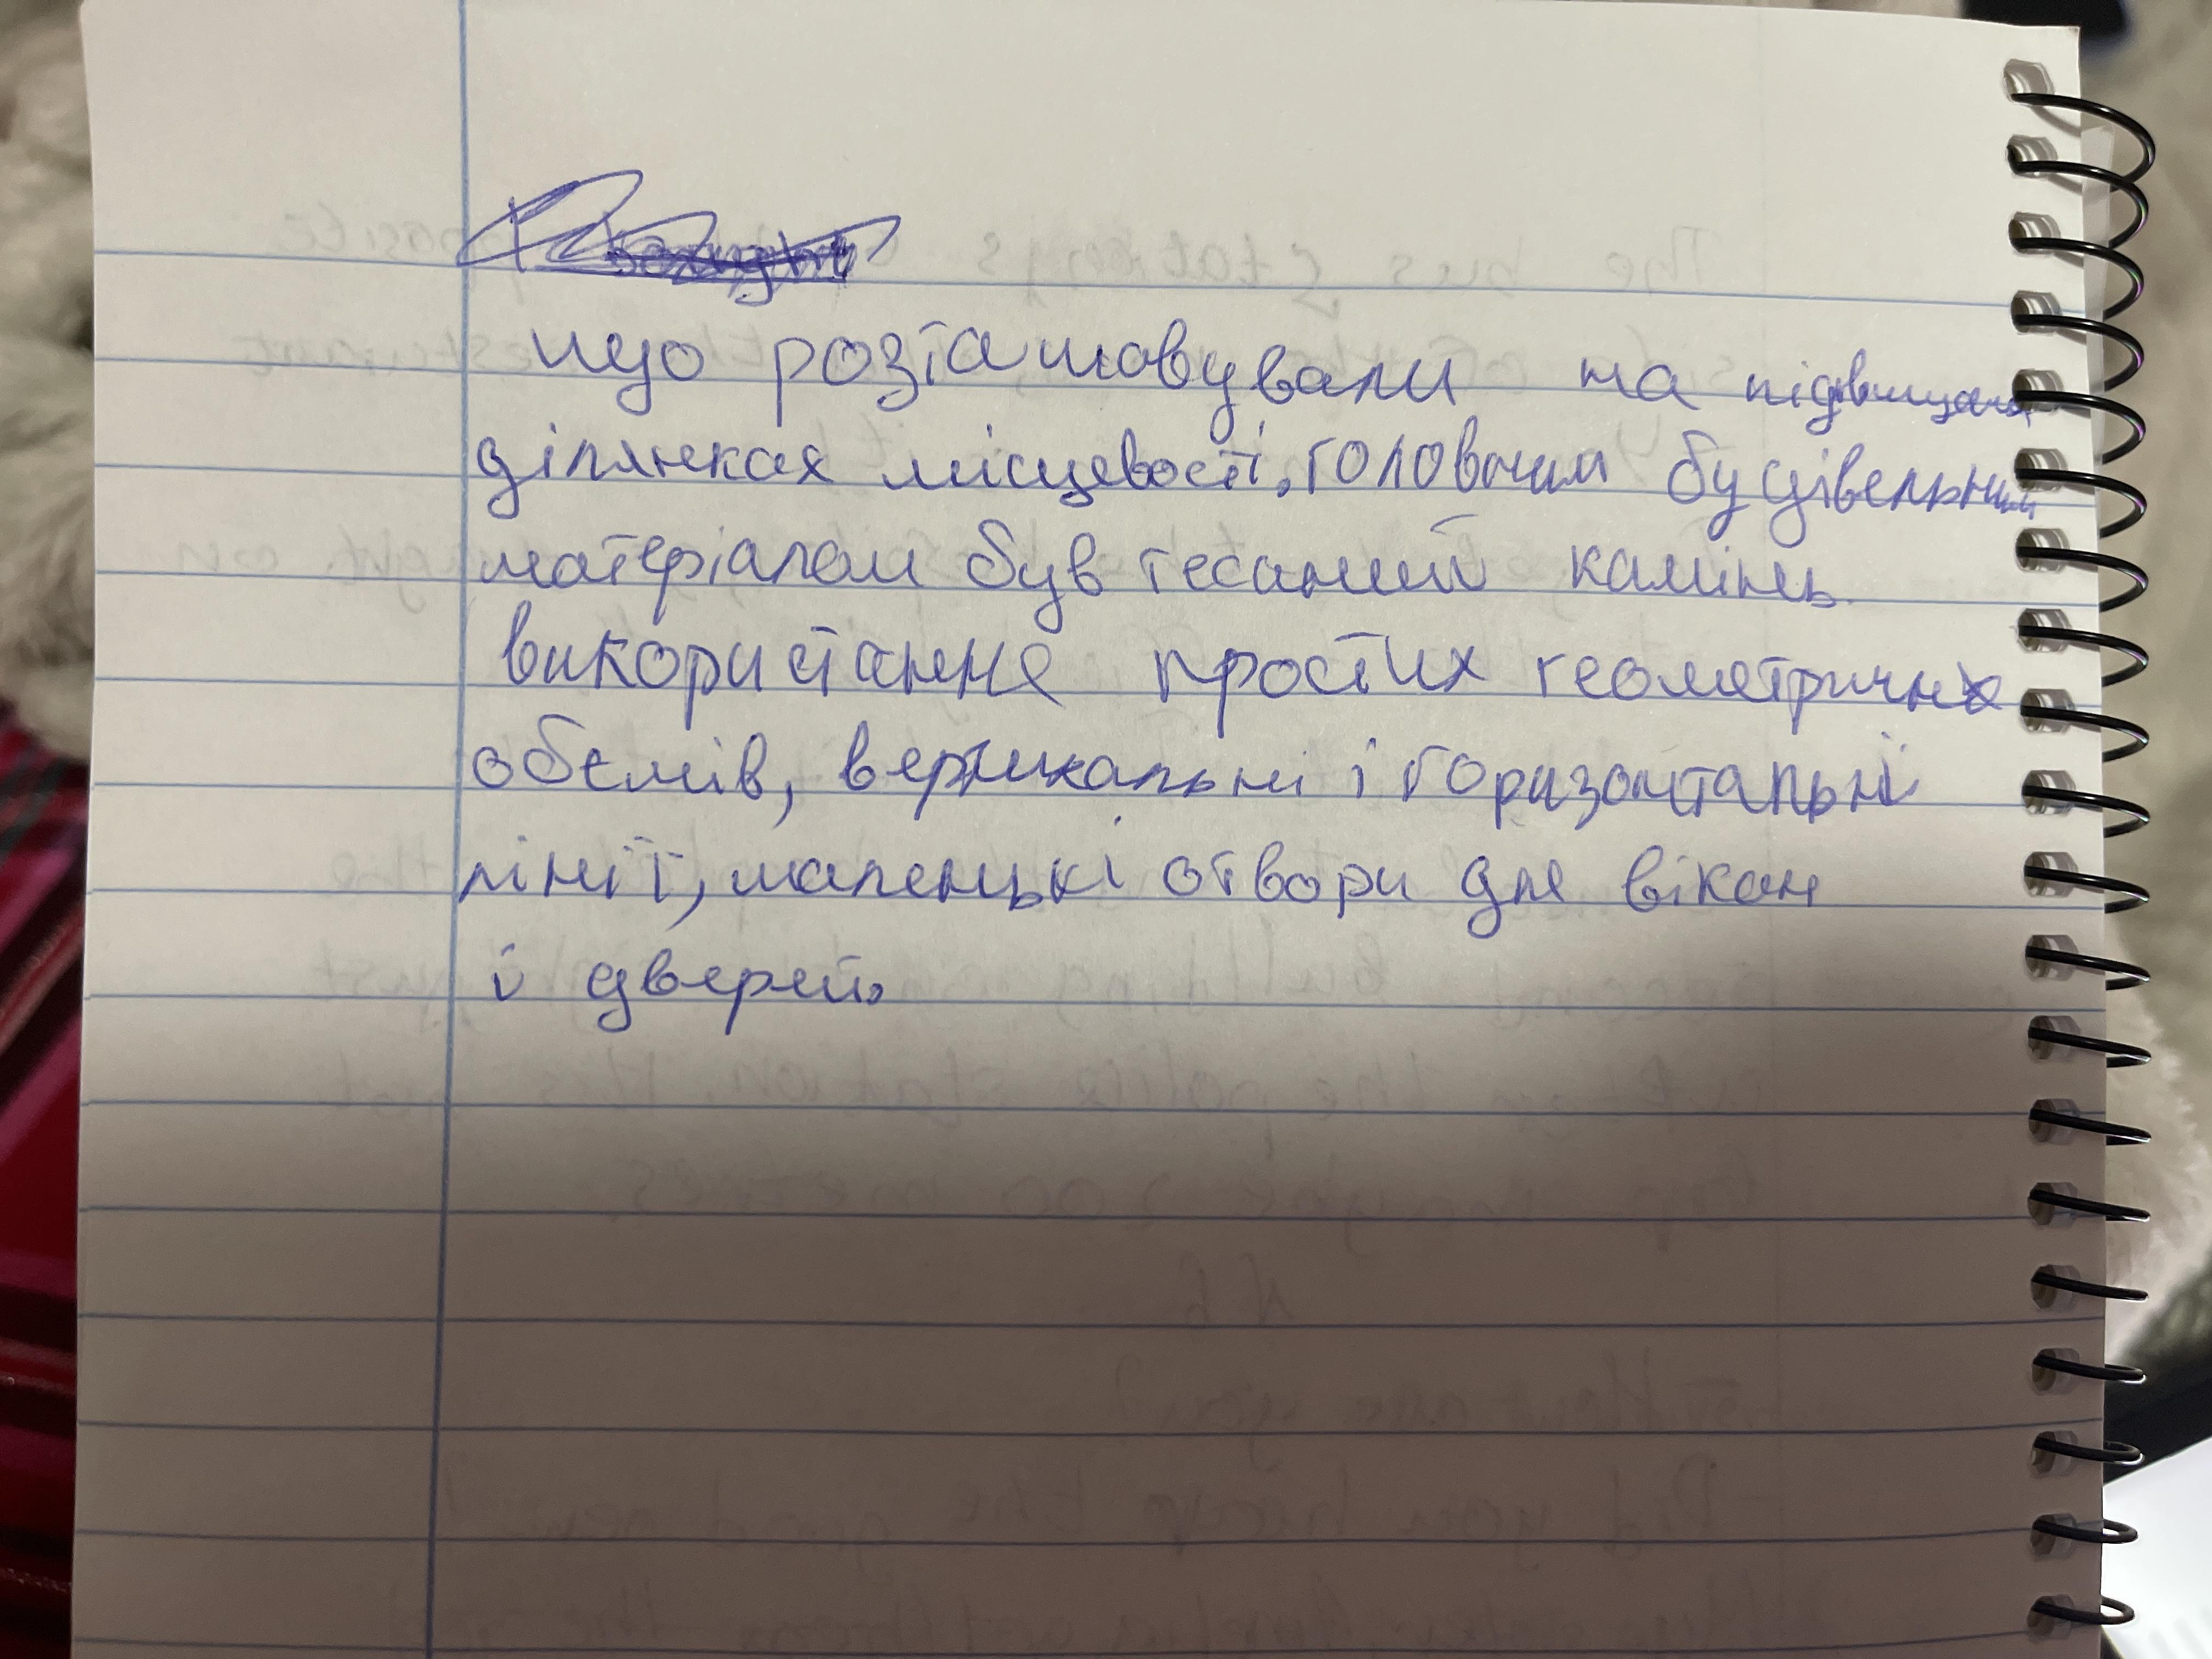 що розташовували на підвищених
ділянках місцевості, головним будівельним
матеріалом був тесаний камінь
використання простих геометричнх
обємів, вертикальні і горизонтальні
лінії, маленькі отвори для вікон
і дверей.